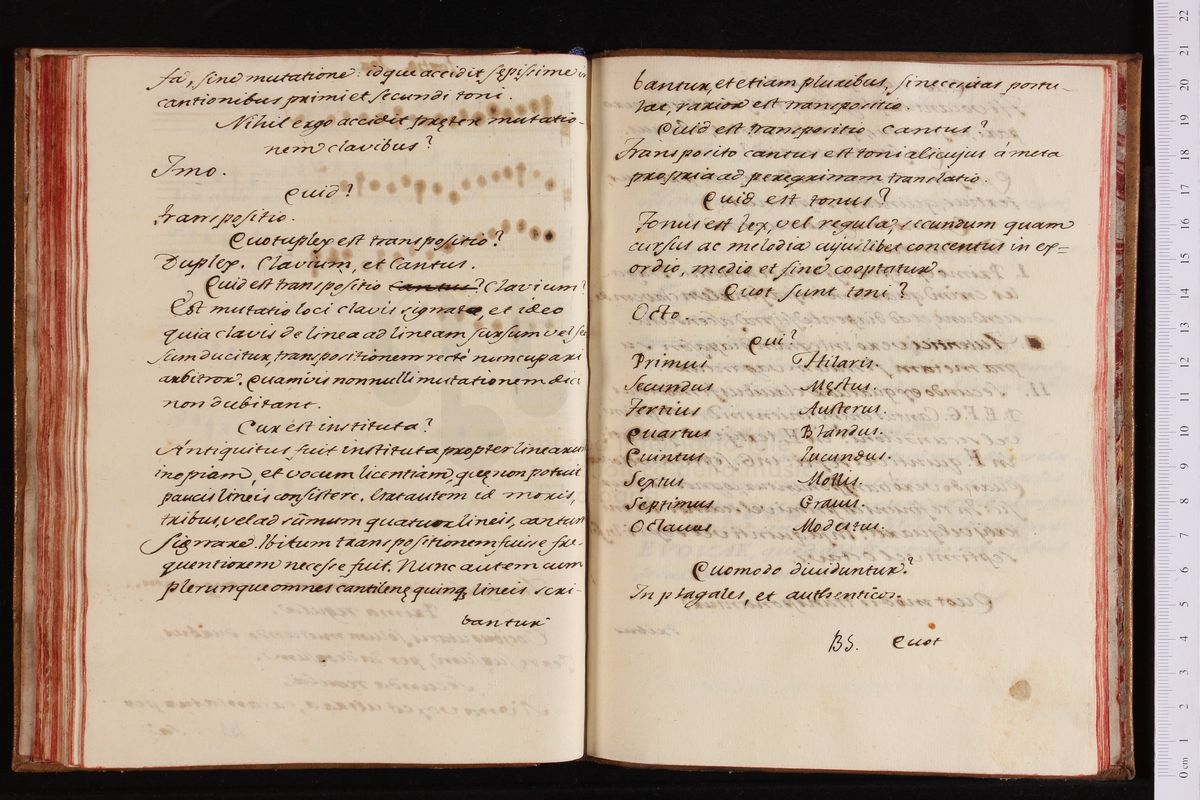 fa, sine mutatione: idque accidit sępissime in
cantionibus primi et secundi toni.
Nihil ergo accidit pręter mutatio-
nem clavibus?
Imo.
Quid?
Transpositio.
Quotuplex est transpositio?
Duplex. Clavium, et Cantus.
Quid est transpositio Cantus? Clavium?
Est mutatio loci clavis signatæ, et ideo
quia clavis de linea ad lineam sursum vel
sum ducitur, transpositionem rectè nuncupari
arbitror. Quamvis nonnulli mutationem dici
non dubitant.
Cur est instituta?
Antiquitus fuit instituta propter linearum
inopiam, et vocum licentiam, quę non potuit
paucis lineis consistere. Erat autem id moris,
tribus, vel ad sūmum quatuor lineis, cantum
signare. Ibi tum transpositionem fuisse fre-
quentiorem necesse fuit. Nunc autem cum
plerunque omnes cantilenę quinq; lineis scri-
bantur
bantur, et etiam pluribus, si necessitas postu-
lat, rarior est transpositio.
Quid est transpositio cantus?
Transposito cantus est toni alicujus á meta
propria ad peregrinam translatio.
Quid est tonus?
Tonus est lex, vel regula, secundum quam
cursus ac melodia cujuslibet concentus in ex=
ordio, medio et fine cooptatur.
Quot sunt toni?
Octo.
Qui?
Primus Hilaris.
Secundus Męstus.
Tertius Austerus.
Quartus Blandus.
Quintus Iucundus.
Sextus Mollis.
Septimus Gravis.
Octavus Modestus.
Quomodo dividuntur?
In plagales, et authenticos.
B5. Quot